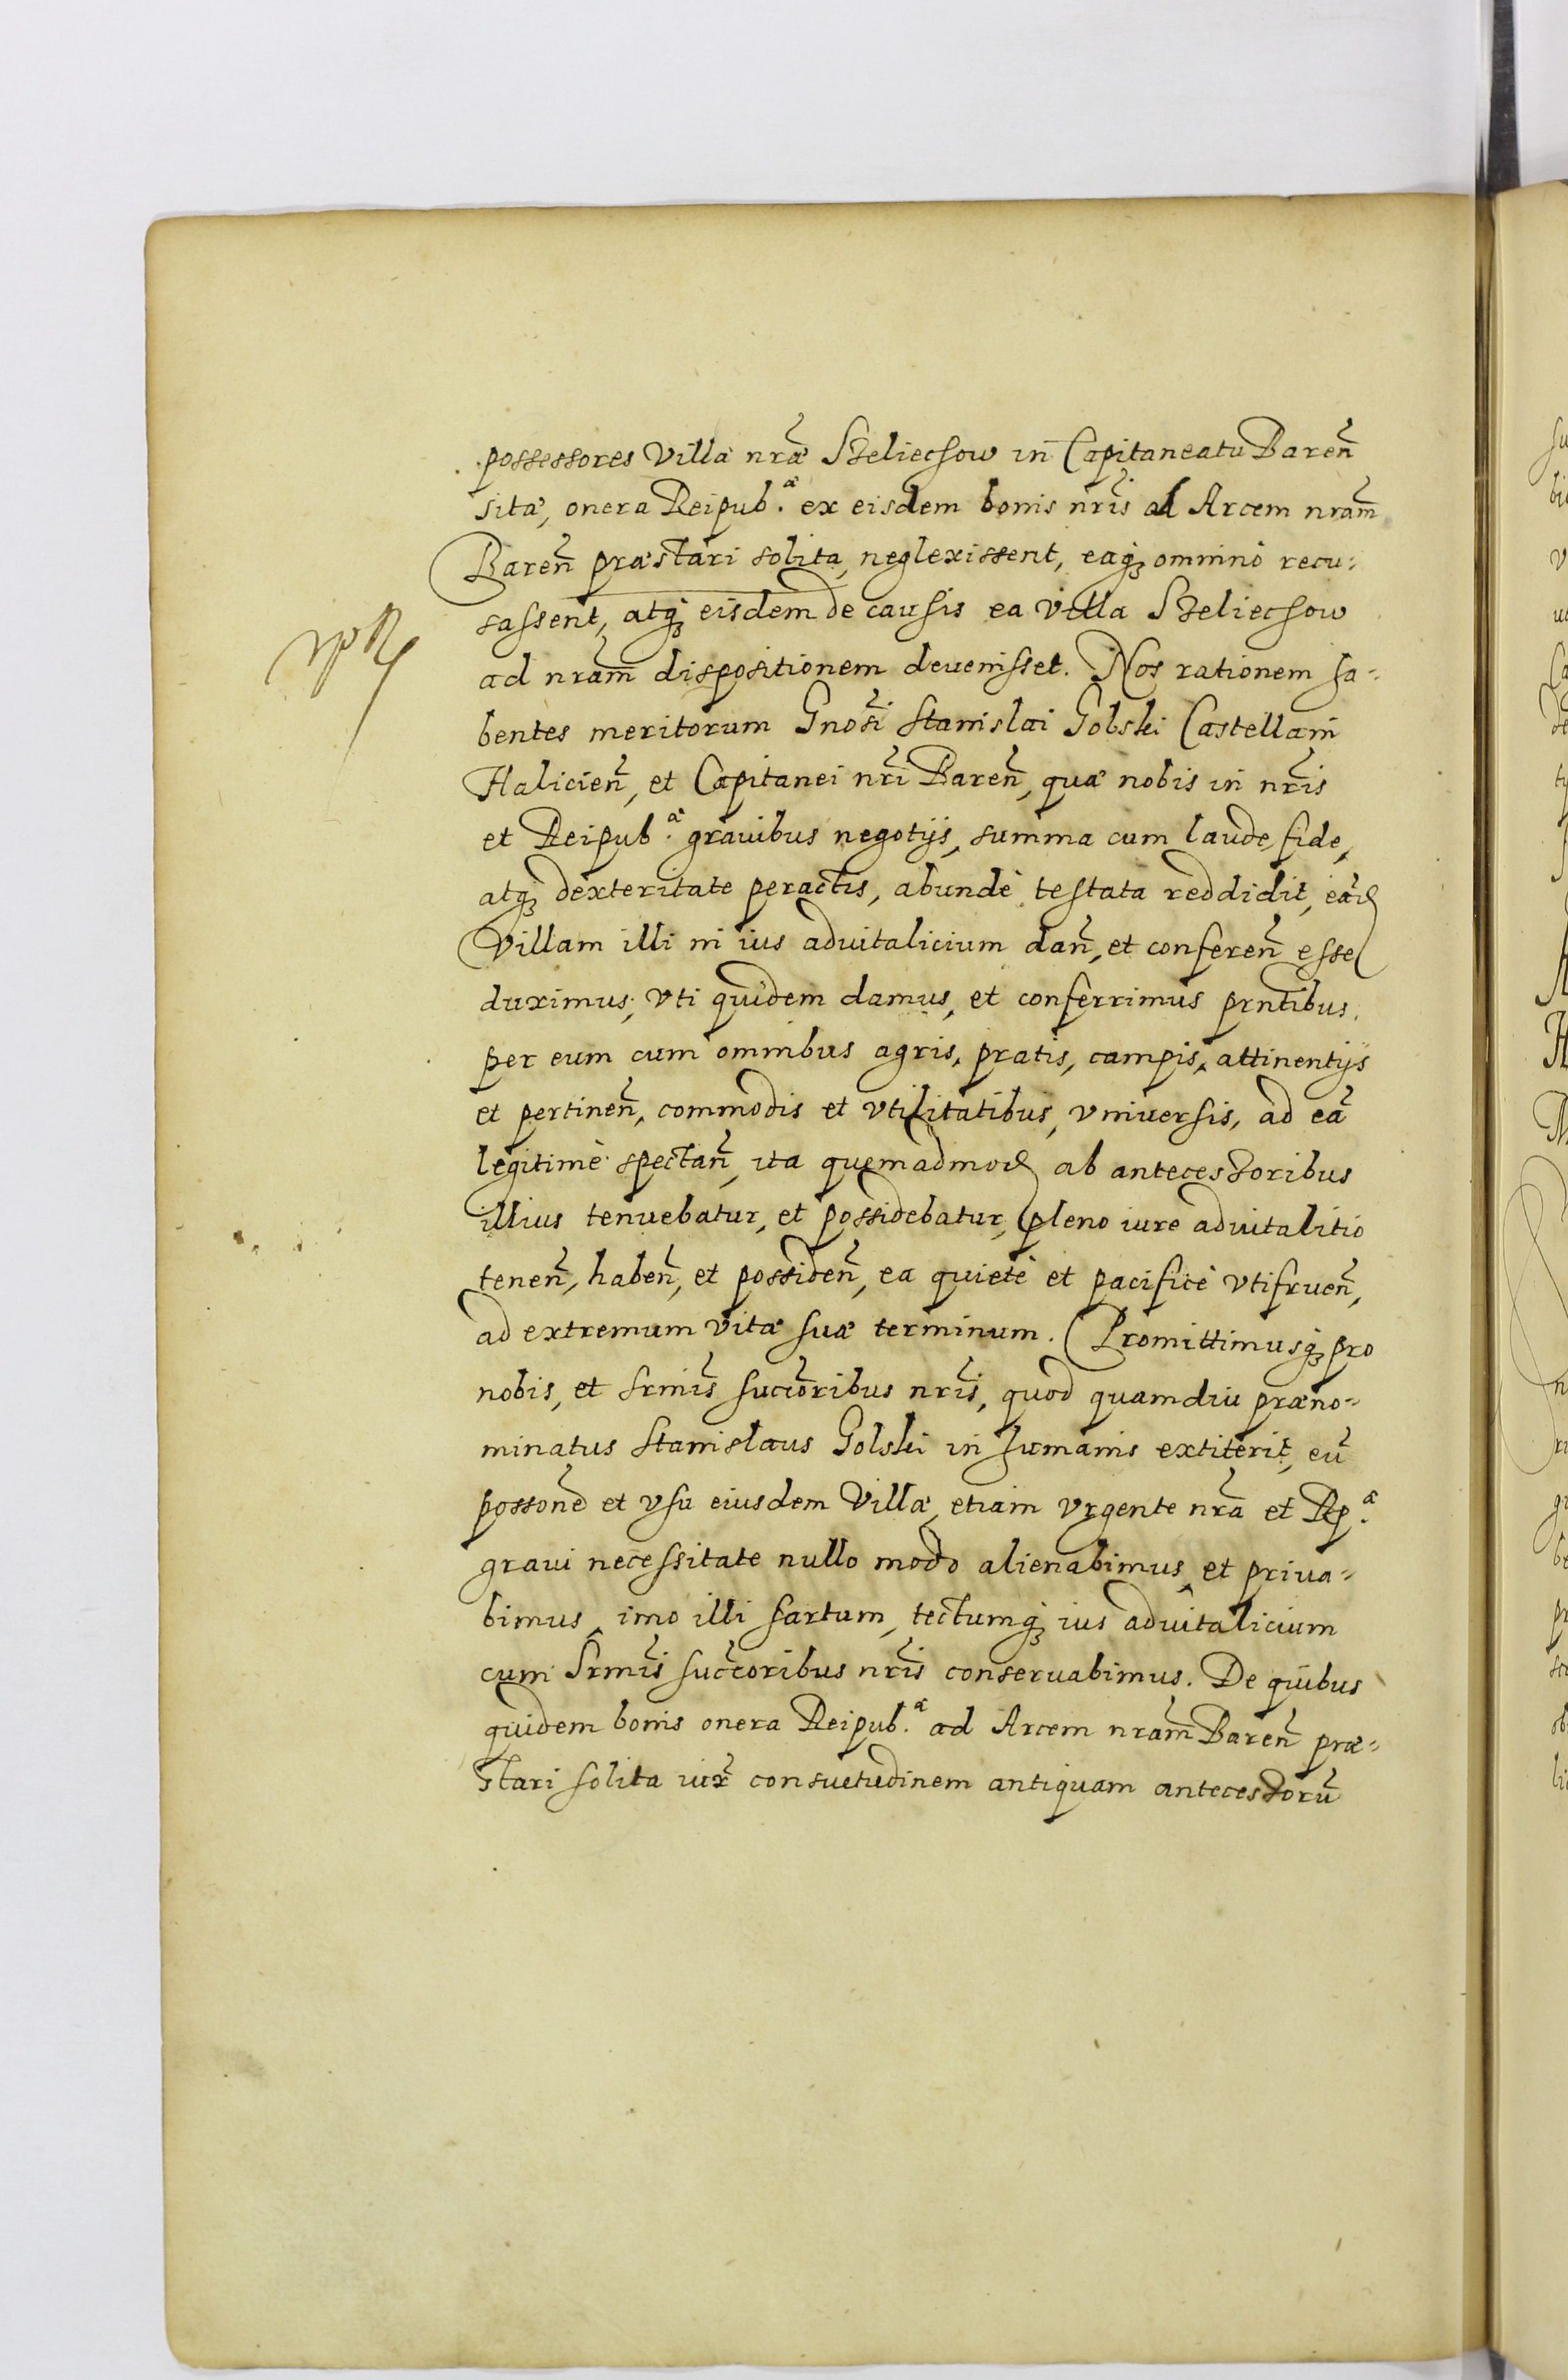 possessores Villæ nræ Szeliechow in Capitaneatu Baren̄
sitæ, onera Reipub.ᵃᵉ ex eisdem bonis nrīs ad Arcem nram̄
Baren̄ præstari solita, neglexissent, eaq₃ omnino recu-
sassent, atq₃ eisdem de causis ea villa Szeliechow
ad nram̄ dispositionem devenisset. Nos rationem ha-
bentes meritorum Gnosī Stanislai Golski Castellani
Halicien̄, et Capitanei nrī Baren̄, quæ nobis in nrīs
et Reipub.ᵃᵉ grauibus negotijs, summa cum laude, fide,
atq₃ dexteritate peractis, abundè testata reddidit,
Villam illi in ius aduitalicium dan̄, et conferen̄ esse
duximus, vti quidem damus, et conferrimus prntibus,
per eum cum omnibus agris, pratis, campis, attinentijs
et pertinen̄, commodis et vtilitatibus, vniuersis, ad eā
legitimè spectan̄, ita quemadmod ab antecessoribus
illius tenuebatur, et possidebatur, pleno iure aduitalitio
tenen̄, haben̄, et possiden̄, ea quietè et pacificè vtifruen̄,
ad extremum vitæ suæ terminum. Promittimusq₃ pro
nobis, et Srmīs succ̄oribus nrīs, quod quamdiu præno-
minatus Stanislaus Golski in humanis extiterit, eū
possonē et vsu eiusdem Villæ, etiam vrgente nrā et Rp.ᵃᵉ
graui necessitate nullo modo alienabimus, et priua-
bimus, imo illi sartum, tectumq₃ ius aduitalicium
cum Srmīs succ̄oribus nrīs conseruabimus. De quibus
quidem bonis onera Reipub.ᵃᵉ ad Arcem nram̄ Baren̄ præ-
stari solita iux̄ consuetudinem antiquam antecessorū